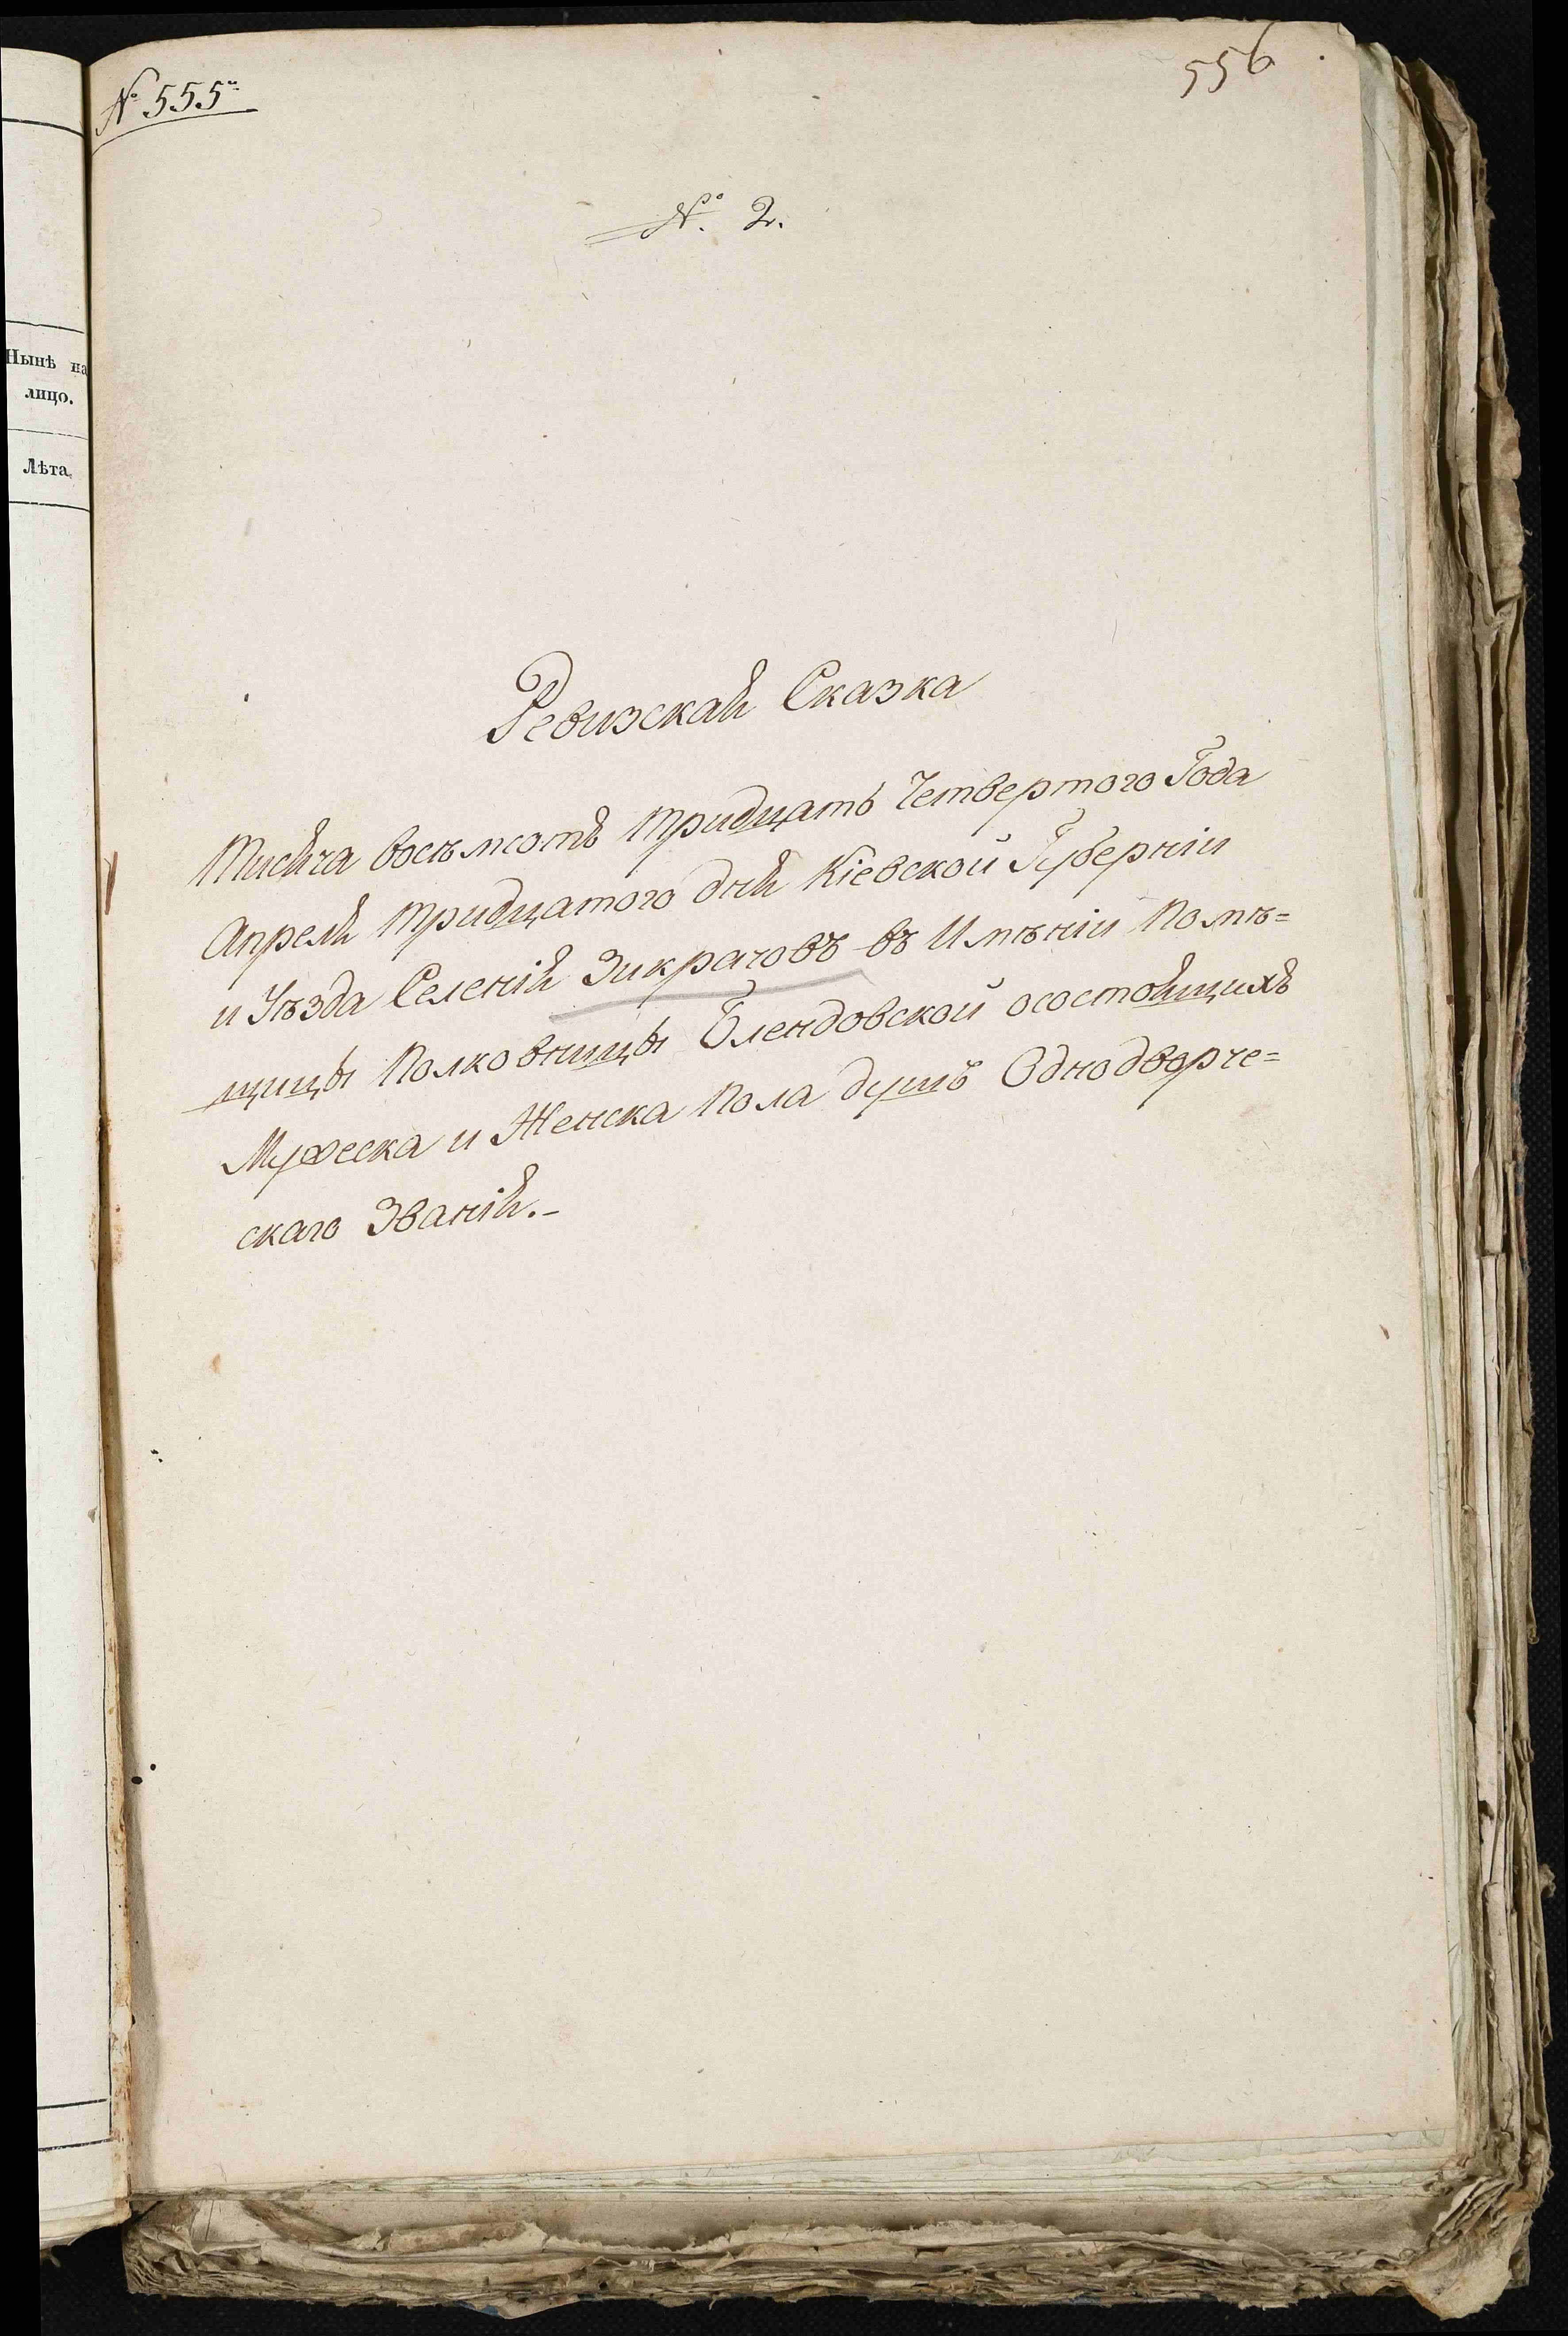 № 555й
556
№ 2.
Нынѣ на
лицо.
Лѣта.
Ревизская Сказка
Тисяча восѣмсотъ тридцать Четвертого Года
Апреля тридцатого дня Кіевской Губерніи
и Уѣзда Селенія Зикрачовъ въ Имѣніи Помѣ=
щицы Полковницы Блендовской осостоящихъ
Мужеска и Женска Пола душъ Однодворче=
скаго Званія.-